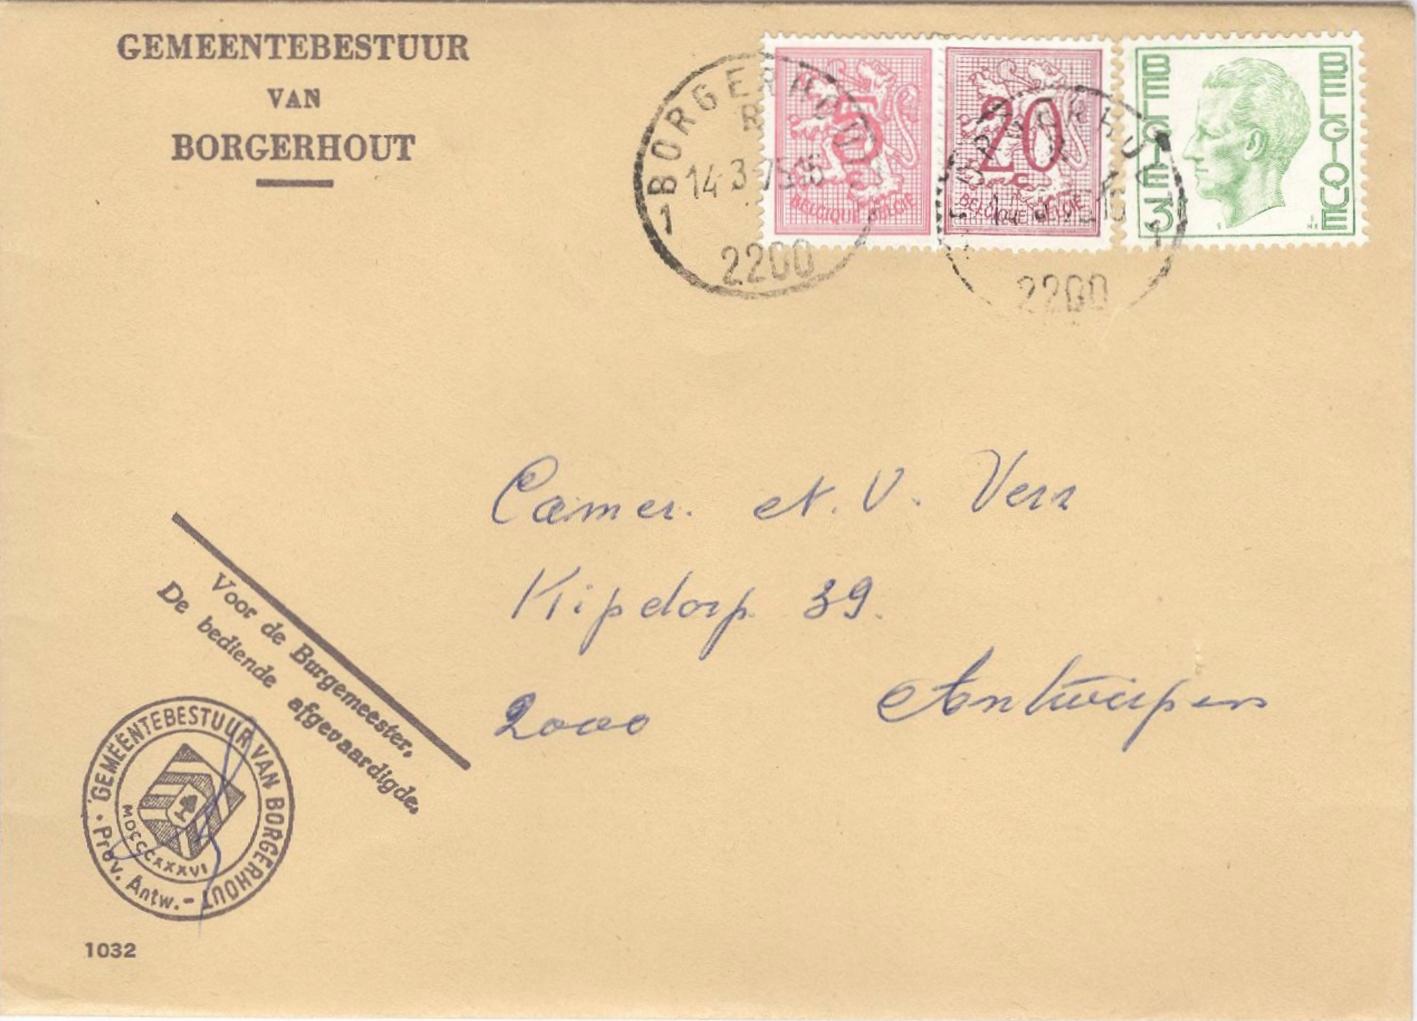 GEMEENTEBESTUUR
VAN
BORGERHOUT
1 BORGERHOUT 1
14-3-75 16
2200
50
BELGIQUE BELGIE
20
BELGIQUE BELGIE
2200
BELGIE
3
BELGIQUE
Camer. N.V. Verz
Kipdorp 39.
2000 Antwerpen
Voor de Burgemeester,
De bediende afgevaardigde,
GEMEENTEBESTUUR VAN BORGERHOUT
MDCCCXXXVI
Prov. Antw.
1032